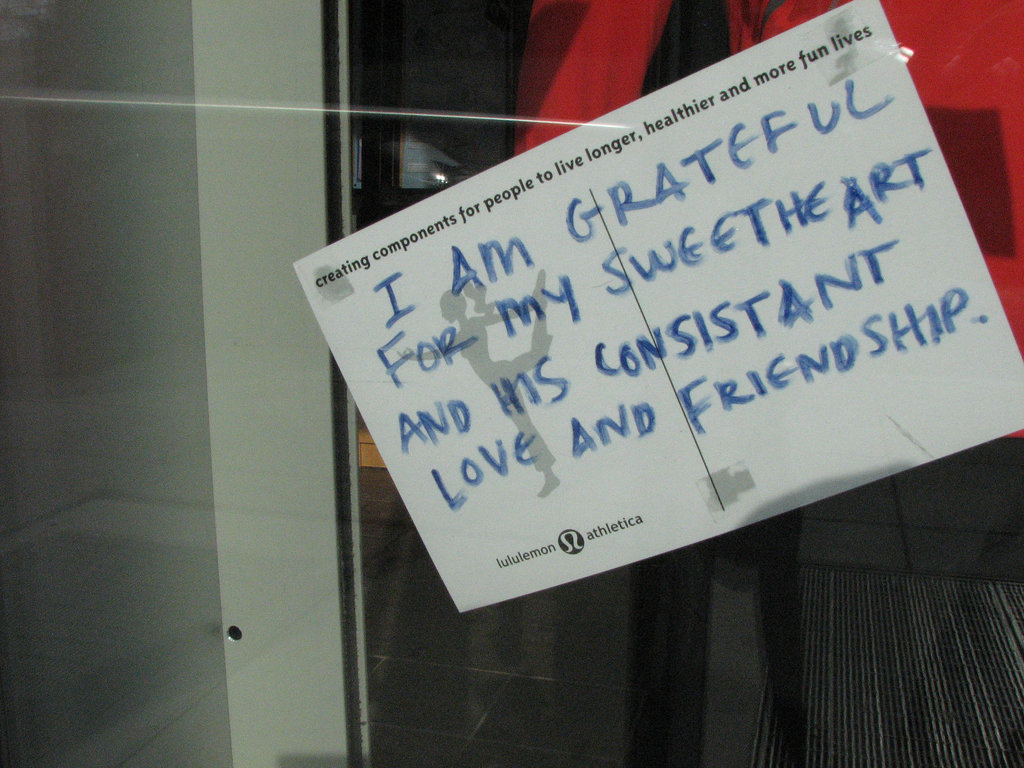 creating components for people to live longer, healthier and more fun lives
I AM GRATEFUL
FOR MY SWEETHEART
AND HIS CONSISTANT
LOVE AND FRIENDSHIP.
lululemon athletica